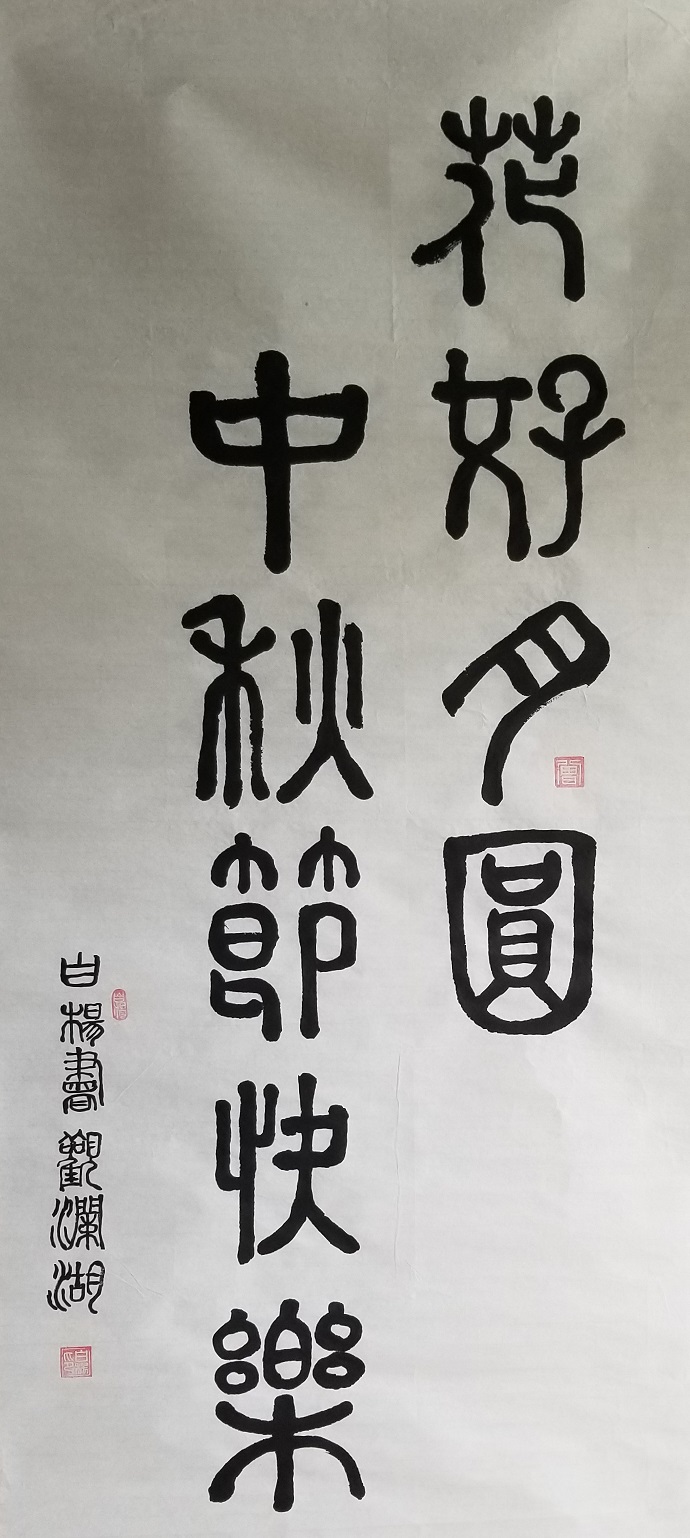 花好月圓
中秋節快樂
白楊書觀瀾湖